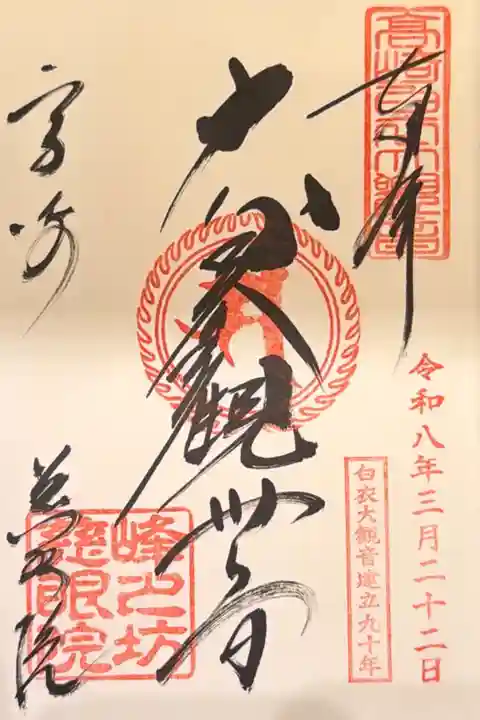 高崎白衣大觀音
奉拝
令和八年三月二十二日
白衣大観音建立九十年
觀世音
高崎
慈眼院
峰之坊
慈眼院